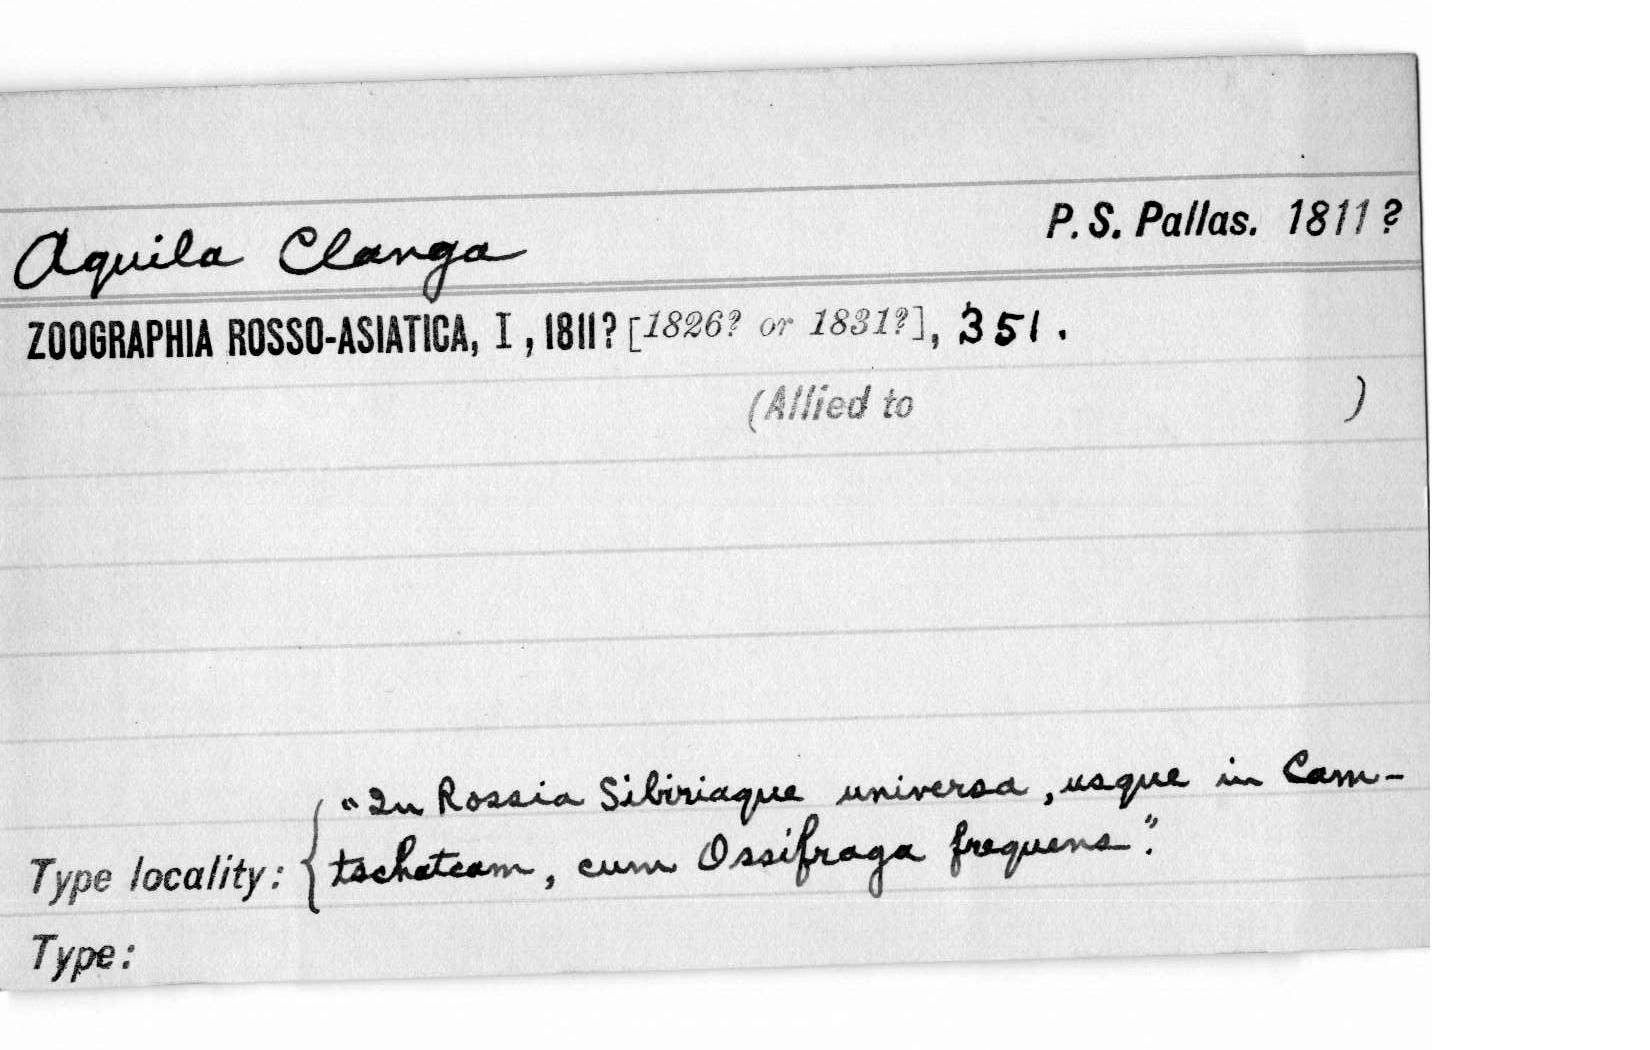 Aquila Clanga
P. S. Pallas. 1811?
ZOOGRAPHIA ROSSO-ASIATICA, I, 1811? [1826? or 1831?], 351.
(Allied to )
"In Rossia Sibiriaque universa, usque in Cam-
Type locality: { tschatcam, cum Ossifraga frequens".
Type: